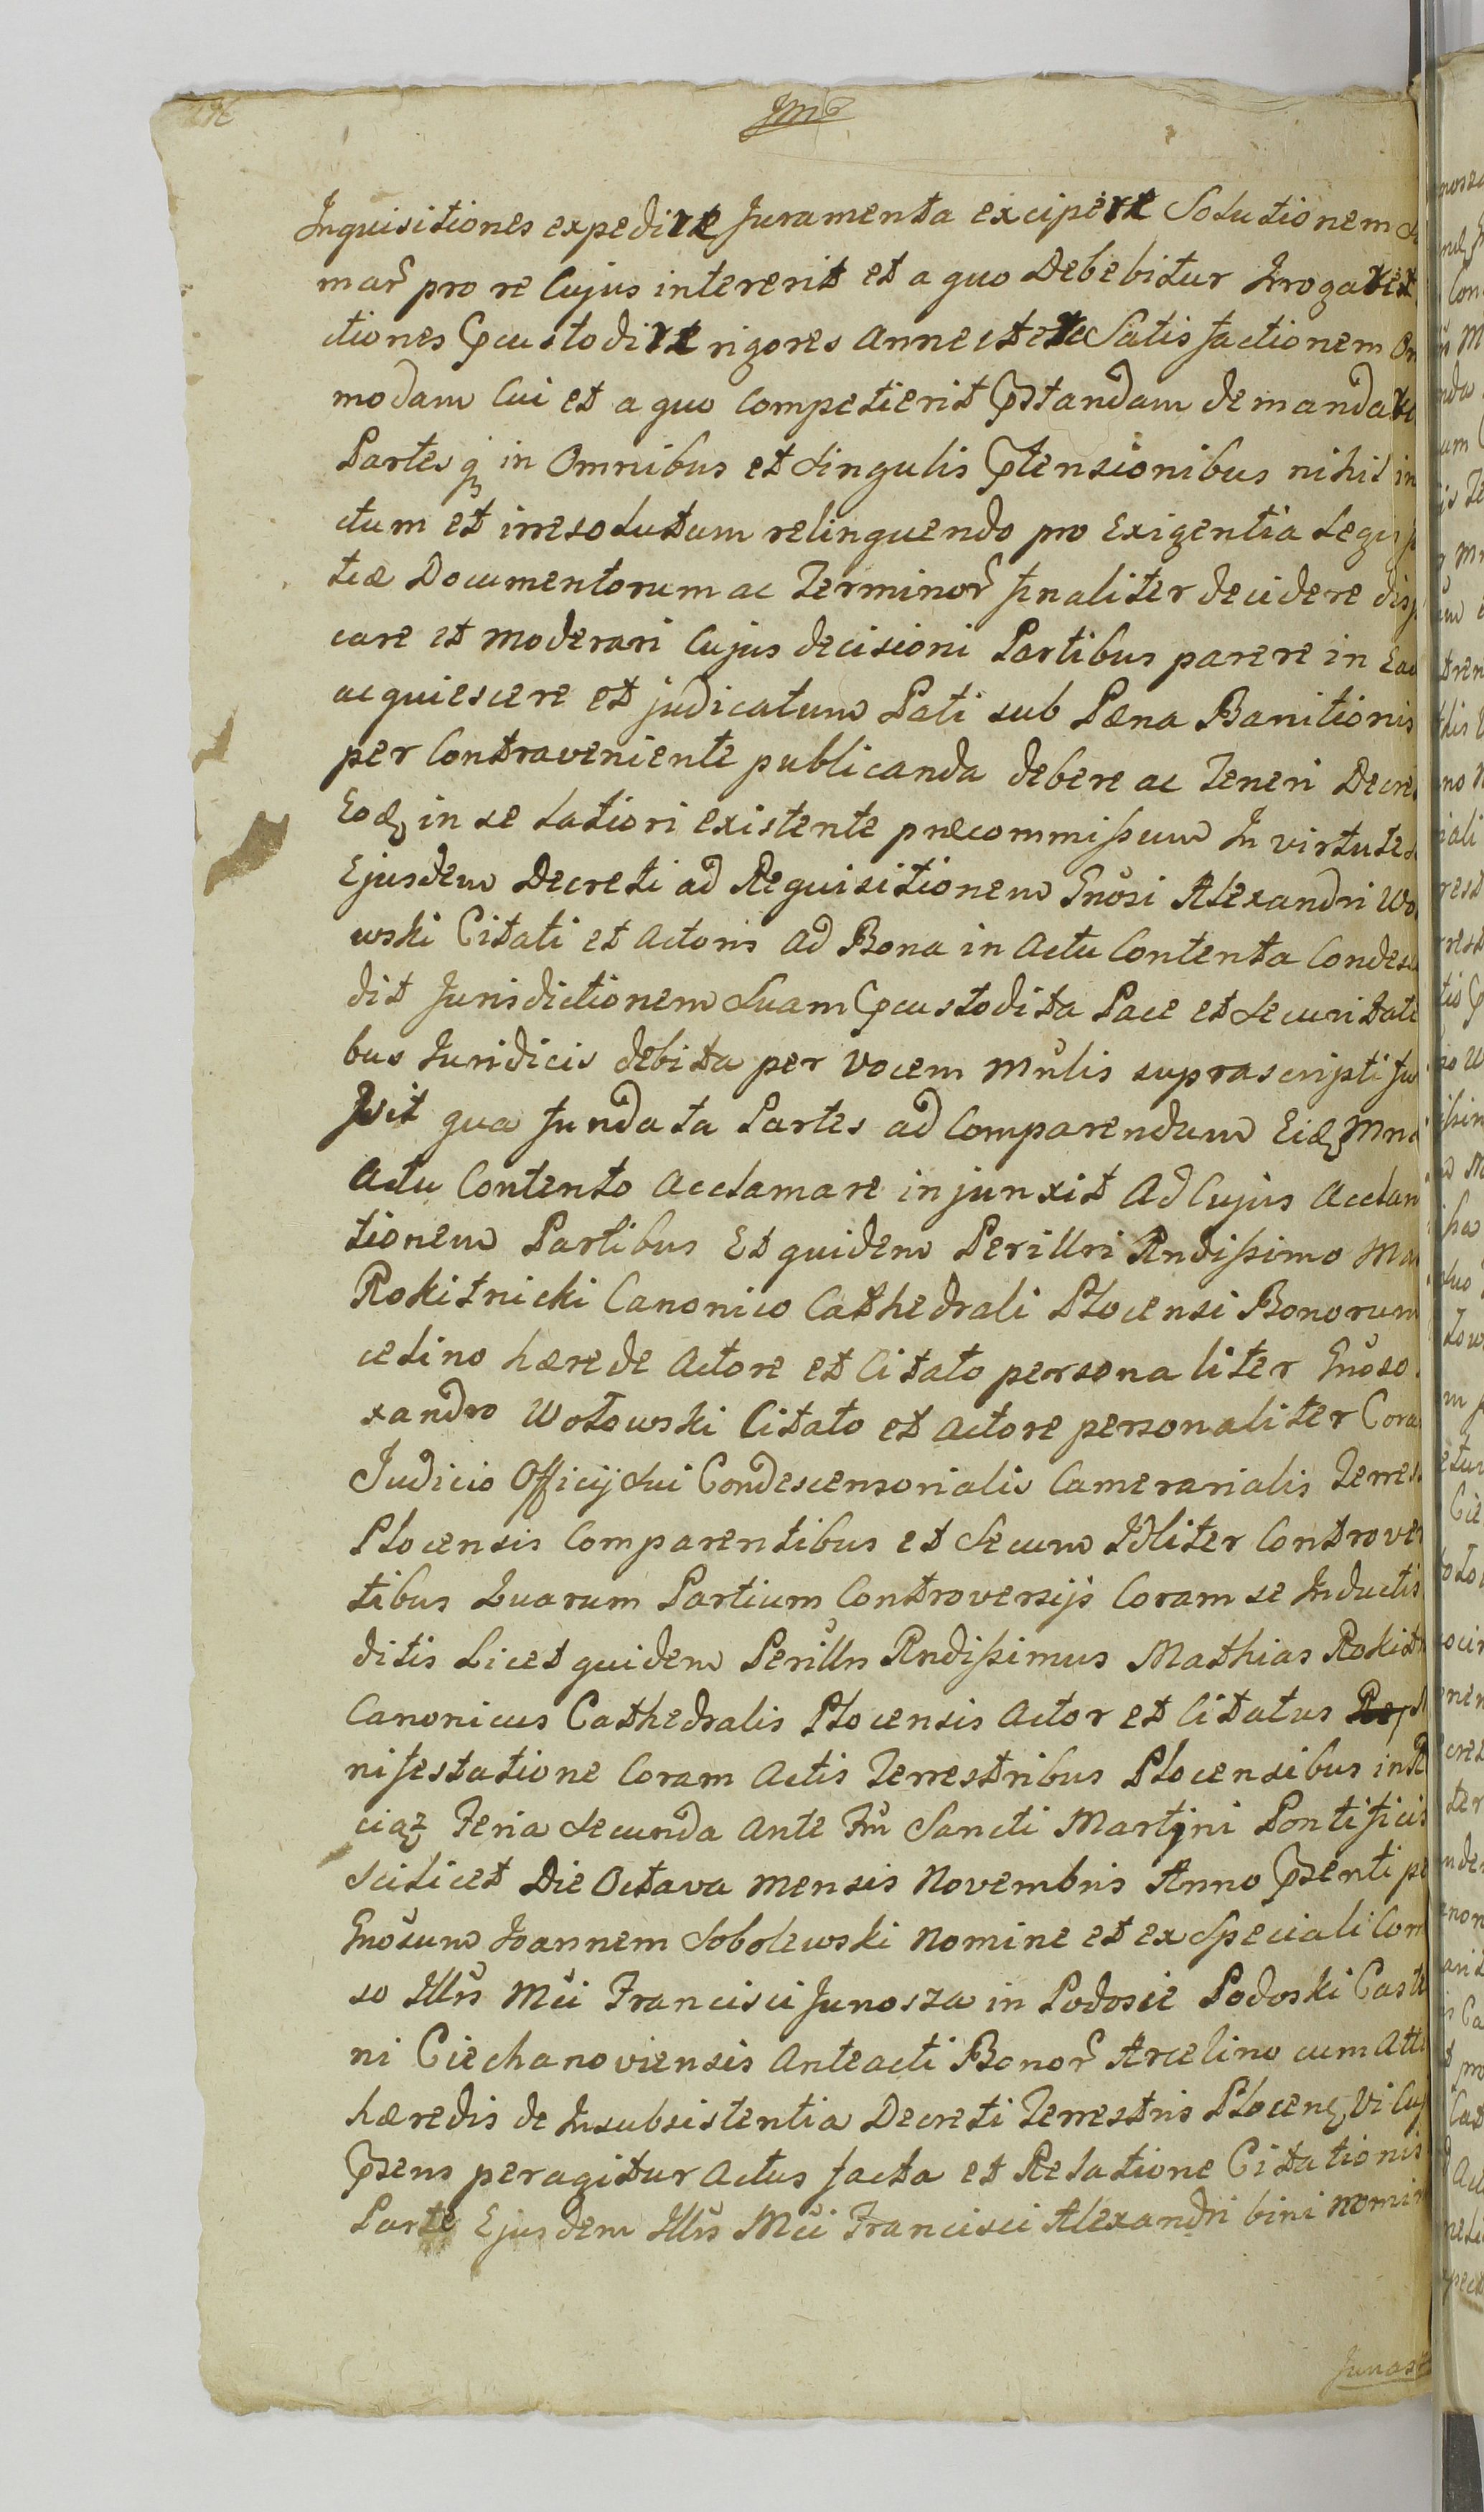 Inquisitiones expedire Juramenta excipere Solutionem
mar̃ pro re Cujus intererit et a quo Debebitur Irrogare
ctiones Pcustodire rigores annectere Satisfactionem
modam Cui et a quo Competierit Pstandam demandare
Partes q̃ in Omnibus et Singulis Ptensionibus nihil in
ctum et irresolutum relinquendo pro Exigentia Legu
tiæ Documentorum ac Terminor̃ finaliter decidere
care et moderari Cujus decisioni Partibus parere in
acquiescere et judicatum Pati sub Pæna Banitionis
per Contraveniente publicanda debere ac Teneri Decre
Eod in se latiori existente præcommissum In virtute
Ejusdem Decreti ad Requisitionem Gnosi Alexandri Wo
wski Citati et Actoris ad Bona in Actu Contenta Condes
dit Jurisdictionem Suam Pcustodita Pace et Securitate
bus Juridicis debita per Vocem Mnlis suprascripti fu
qua fundata Partes ad Comparendum Eid
Actu Contento Acclamare injunxit Ad Cujus Acclam
tionem Partibus Et quidem Perillri Rndissimo Ma
Rokitnicki Canonico Cathedrali Plocensi Bonorum
celino hærede Actore et Citato personaliter Gnoso
xandro Wołowski Citato et Actore personaliter Cora
Judicio Officij Sui Condescensorialis Camerarialis Terres
Plocensis Comparentibus et Secum Jdliter Controver
tibus Quarum Partium Controversijs Coram se Inductis
ditis Licet quidem Perillrs Rndissimus Mathias Rokit
Canonicus Cathedralis Plocensis Actor et Citatus
nifestatione Coram Actis Terrestribus Plocensibus in
ciąz Feria Secunda Ante Fm Sancti Martyni Pontificis
Scilicet Die Octava Mensis Novembris Anno Psenti
Gnosum Joannem Sobolewski Nomine et ex Speciali Com
so Illrs Mci Francisci Junosza in Podosie Podoski Caste
ni Ciechanoviensis Anteacti Bonor̃ Arcelino cum Att
hæredis de Insubsistentia Decreti Terrestris Plocen Vi Cuj
Psens peragitur Actus facta et Relatione Citationis
Parte Ejusdem Illrs Mci Francisci Alexandri bini Nomin